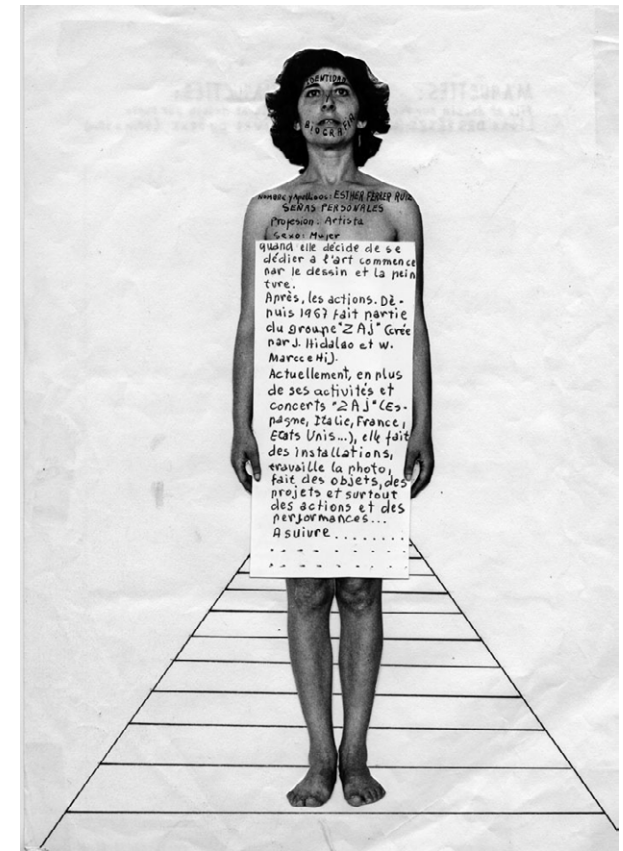 IDENTIDAD
BIOGRAFIA
Nombre y Apellidos: ESTHER FERRER RUIZ
SEÑAS PERSONALES
Profesion: Artista
Sexo: Mujer
quand elle décide de se
dédier a l'art commence
par le dessin et la pein
ture.
Après, les actions. De-
puis 1967 fait partie
du groupe "ZAJ" (crée
par J. Hidalgo et W.
Marccehi).
Actuellement, en plus
de ses activités et
concerts "ZAJ" (Es-
pagne, Italie, France,
Etats Unis...), elle fait
des installations,
travaille la photo,
fait des objets, des
projets et surtout
des actions et des
performances...
A suivre . . . . . . . .
. . . . . . . .
. . . . . . . .
MAQUETTES: